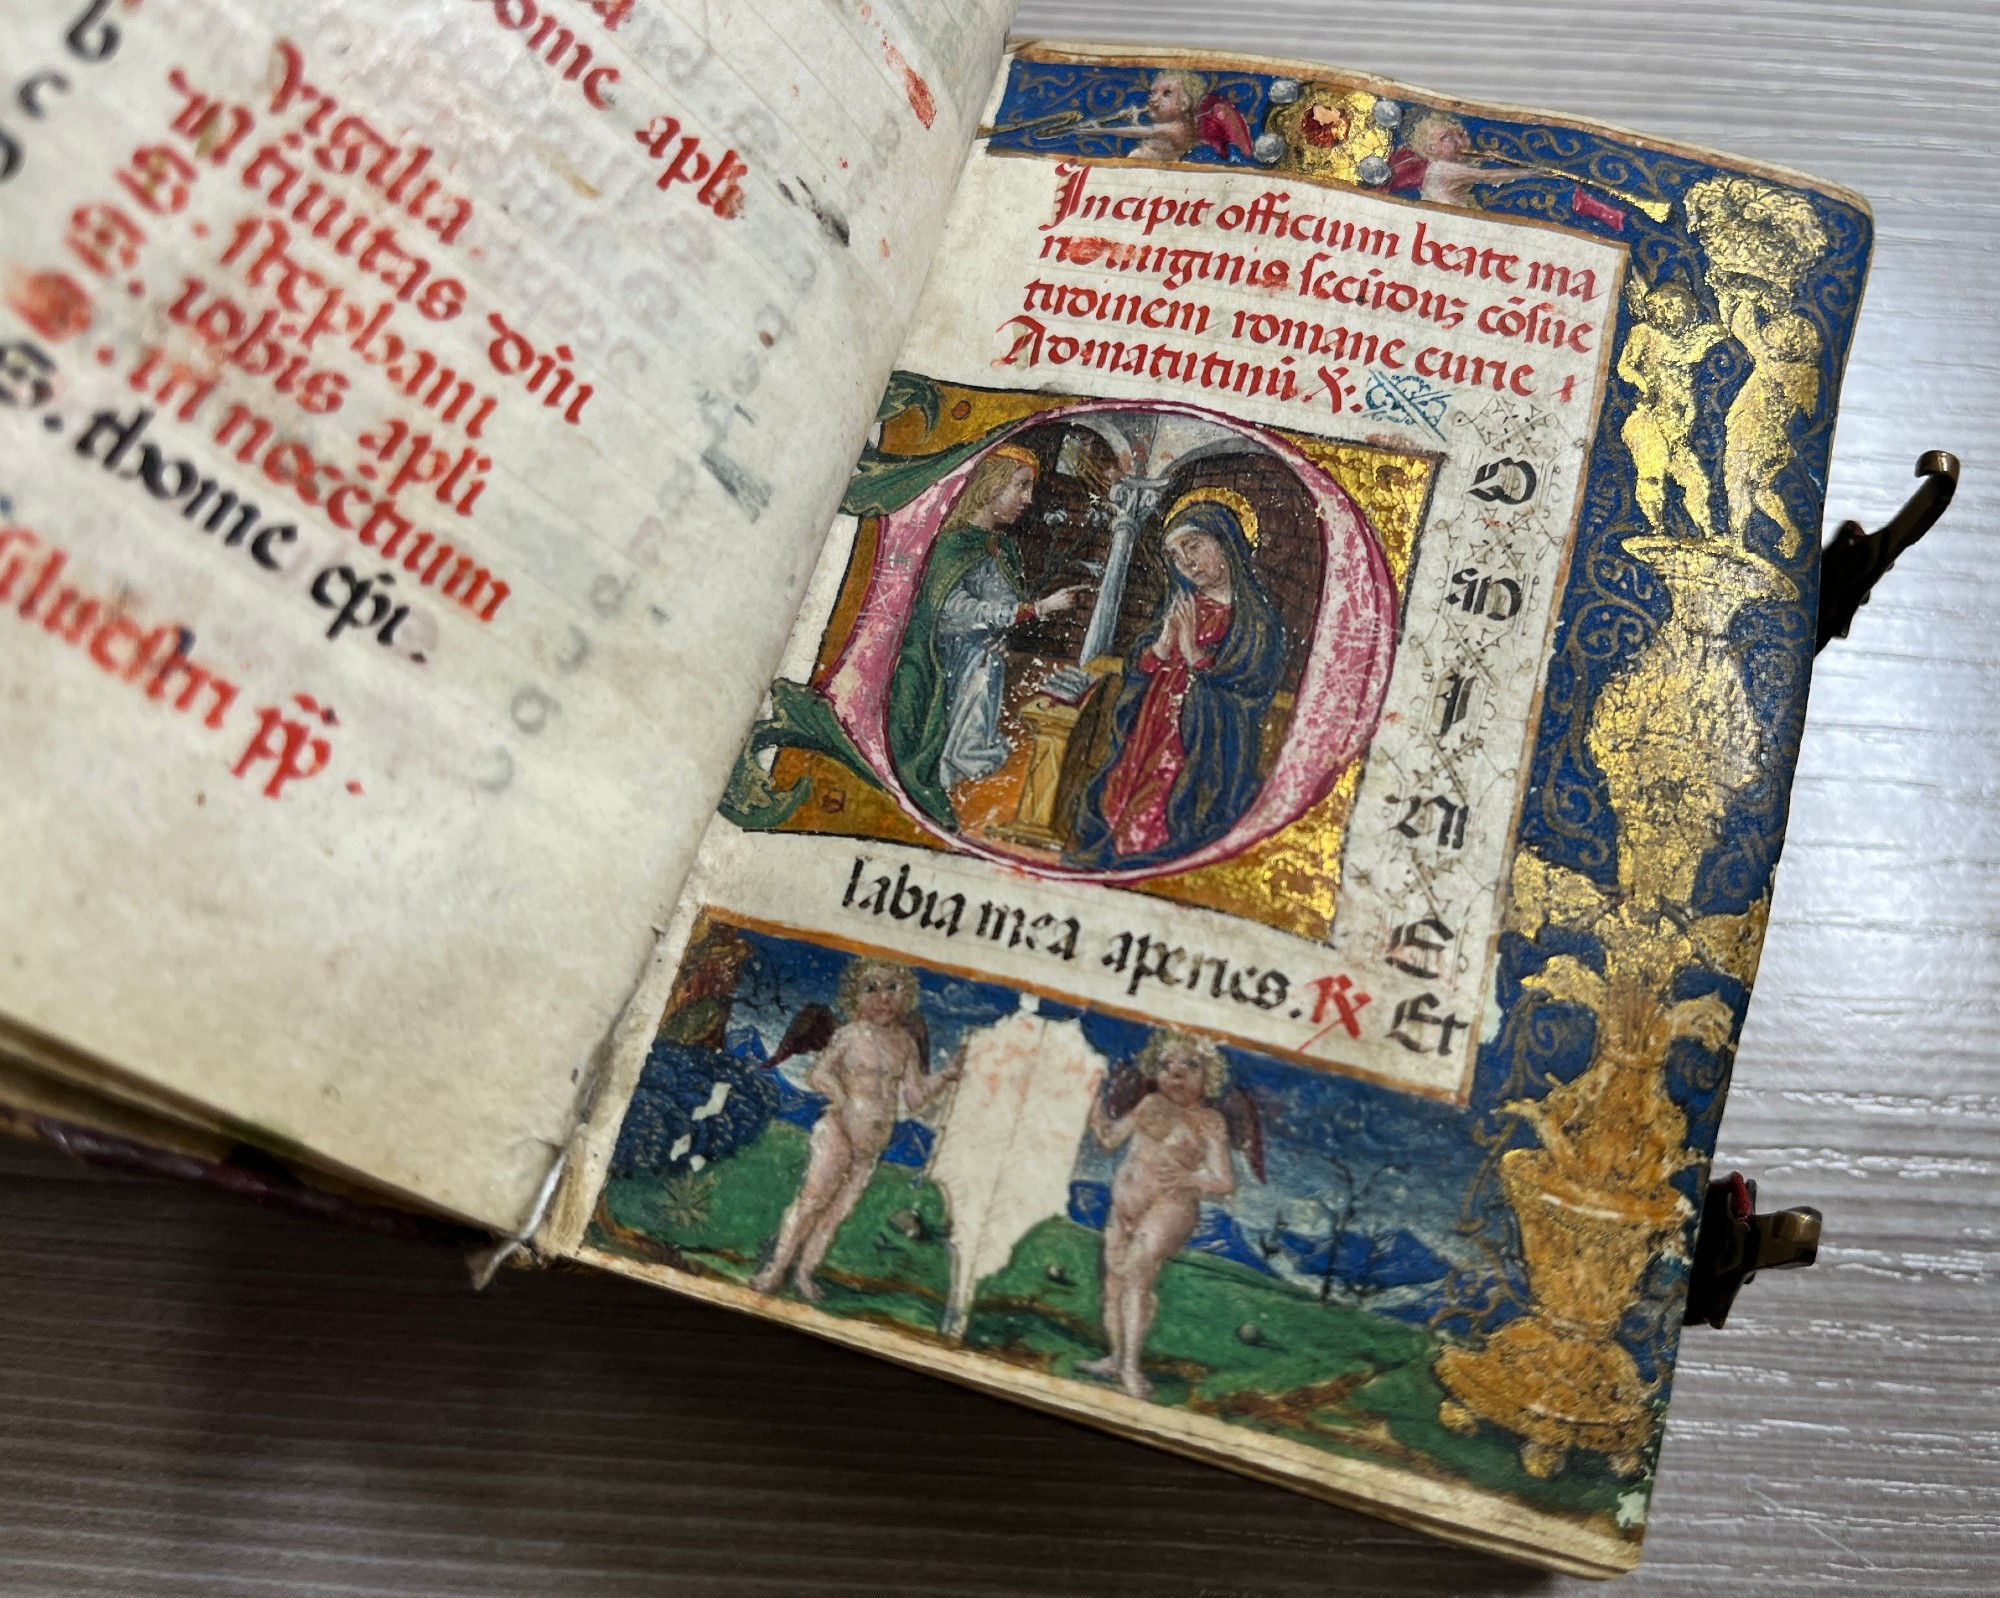 b
c
thome apli
Vigilia
Natiuitas dn̄i
S. stephani
S. iohis apli
S. innocētium
S. thome ep̄i.
siluestri pp̄.
Incipit officium beate ma
rie uirginis secūdū cōsue
tudinem romane curie
Ad matutinū. ℣.
D
OM
I
NE
Et
labia mea aperies. ℟